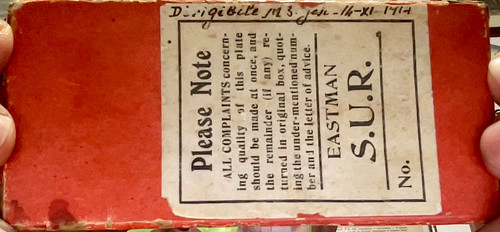 Dirigibile M3. Jesi-14-XI-1914
Please Note
ALL COMPLAINTS concern-
ing quality of this plate
should be made at once, and
the remainder (if any) re-
turned in original box, quot-
ing the under-mentioned num-
ber and the letter of advice.
EASTMAN
S.U.R.
No.